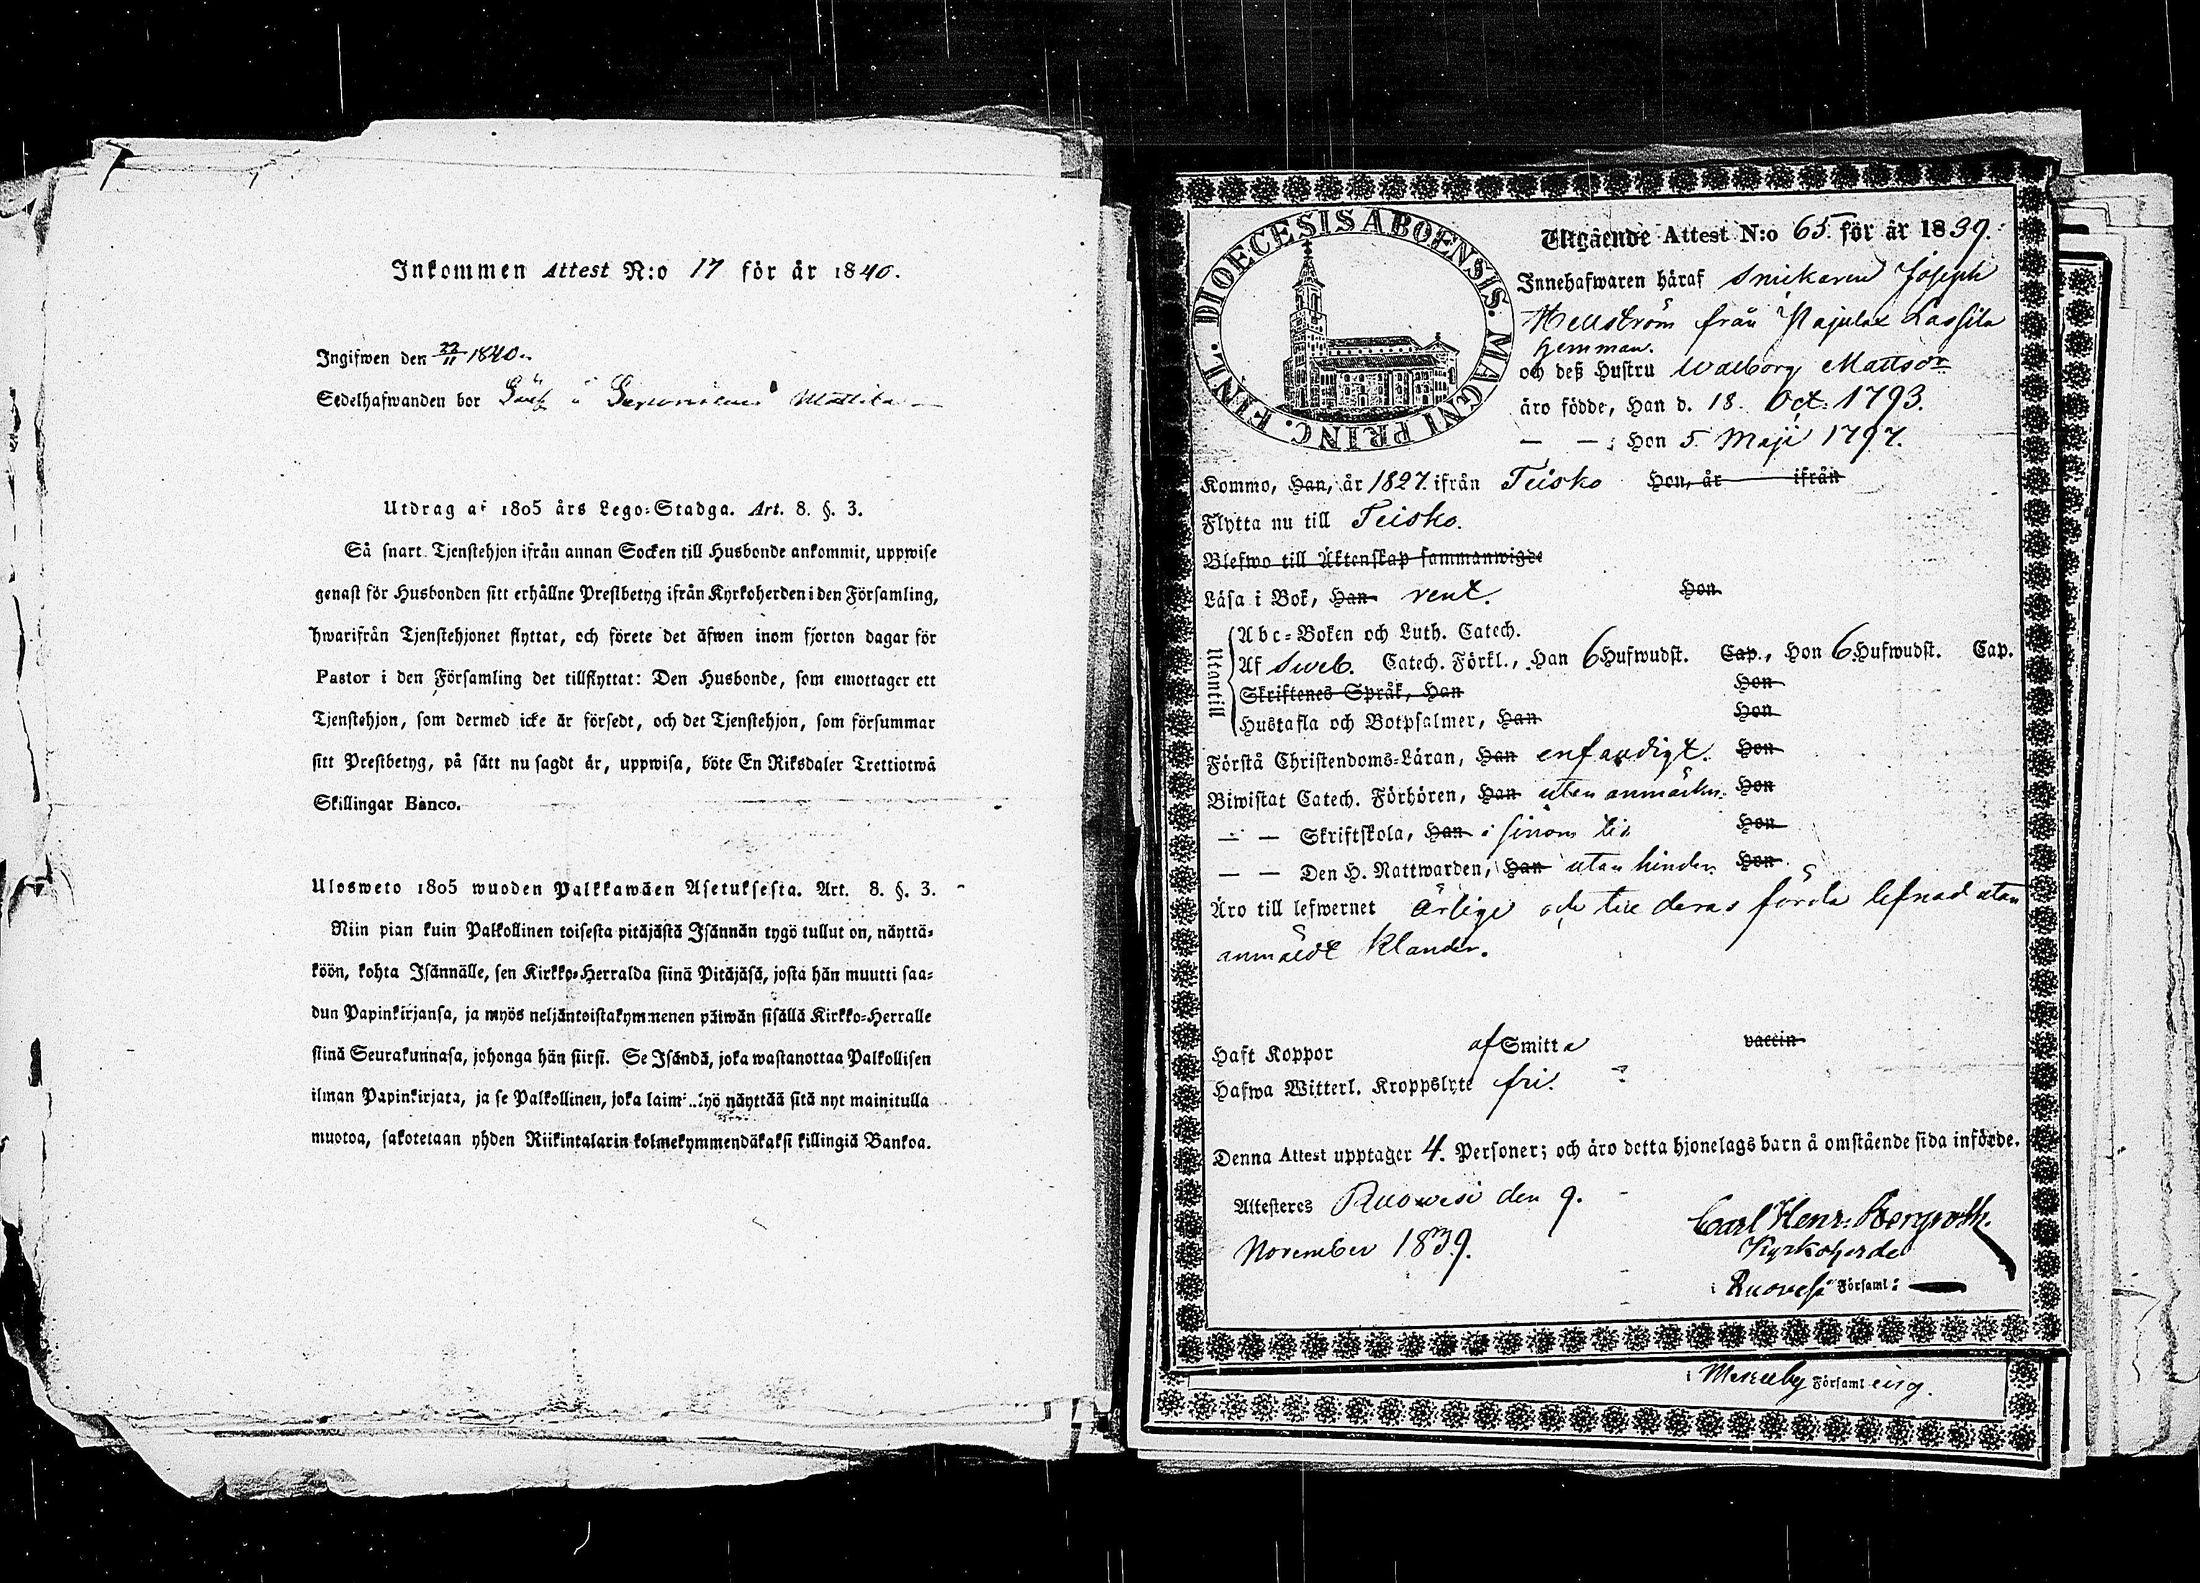 Inkommen Attest N:o 17 för år 1840.
Ingifwen den 22/11 1840.
Sedelhafwanden bor Mattila
Utdrag af 1805 års Lego-Stadga. Art. 8. §. 3.
Så snart Tjenstehjon ifrån annan Socken till Husbonde ankommit, uppwise
genast för Husbonden sitt erhållne Prestbetyg ifrån Kyrkoherden i den Församling,
hwarifrån Tjenstehjonet flyttat, och förete det äfwen inom fjorton dagar för
Pastor i den Församling det tillflyttat: Den Husbonde, som emottager ett
Tjenstehjon, som dermed icke är försedt, och det Tjenstehjon, som försummar
sitt Prestbetyg, på sätt nu sagdt är, uppwisa, böte En Riksdaler Trettiotwå
Skillingar Banco.
Ulosweto 1805 wuoden Palkkawäen Asetuksesta. Art. 8. §. 3.
Niin pian kuin Palkollinen toisesta pitäjästä Isännän tygö tullut on, näyttä-
köön, kohta Isännälle, sen Kirkko-Herralda siinä Pitäjäsä, josta hän muutti saa-
dun Papinkirjansa, ja myös neljäntoistakymmenen päiwän sisällä Kirkko-Herralle
siinä Seurakunnasa, johonga hän siirsi. Se Isändä, joka wastanottaa Palkollisen
ilman Papinkirjata, ja se Palkollinen, joka laim lyö näyttää sitä nyt mainitulla
muotoa, sakotetaan yhden Riikintalarin kolmekymmendäkaksi killingiä Bankoa.
DIOECESIS ABOENSIS. MAGNI PRINC. FINL.
Utgående Attest N:o 65. för år 1839.
Innehafwaren häraf Snickaren Joseph
Hellström från Pajulax Lassila
hemman.
och deß Hustru Walborg Mattsdr
äro födde, Han d. 18. Oct. 1793.
— — ; Hon 5 Maji 1797.
Kommo, Han, år 1827. ifrån Teisko Hon, år ifrån
Flytta nu till Teisko.
Blefwo till Äktenskap sammanwigde
Läsa i Bok, Han rent. Hon
Utantill
Abc-Boken och Luth. Catech.
Af Sweb. Catech. Förkl., Han 6 Hufwudst. Cap., Hon 6. Hufwudst. Cap.
Skriftenes Språk, Han Hon
Hustafla och Botpsalmer, Han Hon
Förstå Christendoms-Läran, Han enfaldigt. Hon
Biwistat Catech. Förhören, Han utan anmärkn. Hon
— — Skriftskola, Han i sinom tid Hon
— — Den H. Nattwarden, Han utan hinder. Hon
Äro till lefwernet ärlige och till deras förda lefnad utan
anmäldt klander.
Haft Koppor af Smitta vaccin
Hafwa Witterl. Kroppslyte fri.
Denna Attest upptager 4. Personer; och äro detta hjonelags barn å omstående sida införde.
Attesteres Ruowesi den 9.
November 1839.
Carl Henr. Bergroth.
Kyrkoherde
i Ruovesi Församl:
i Församl